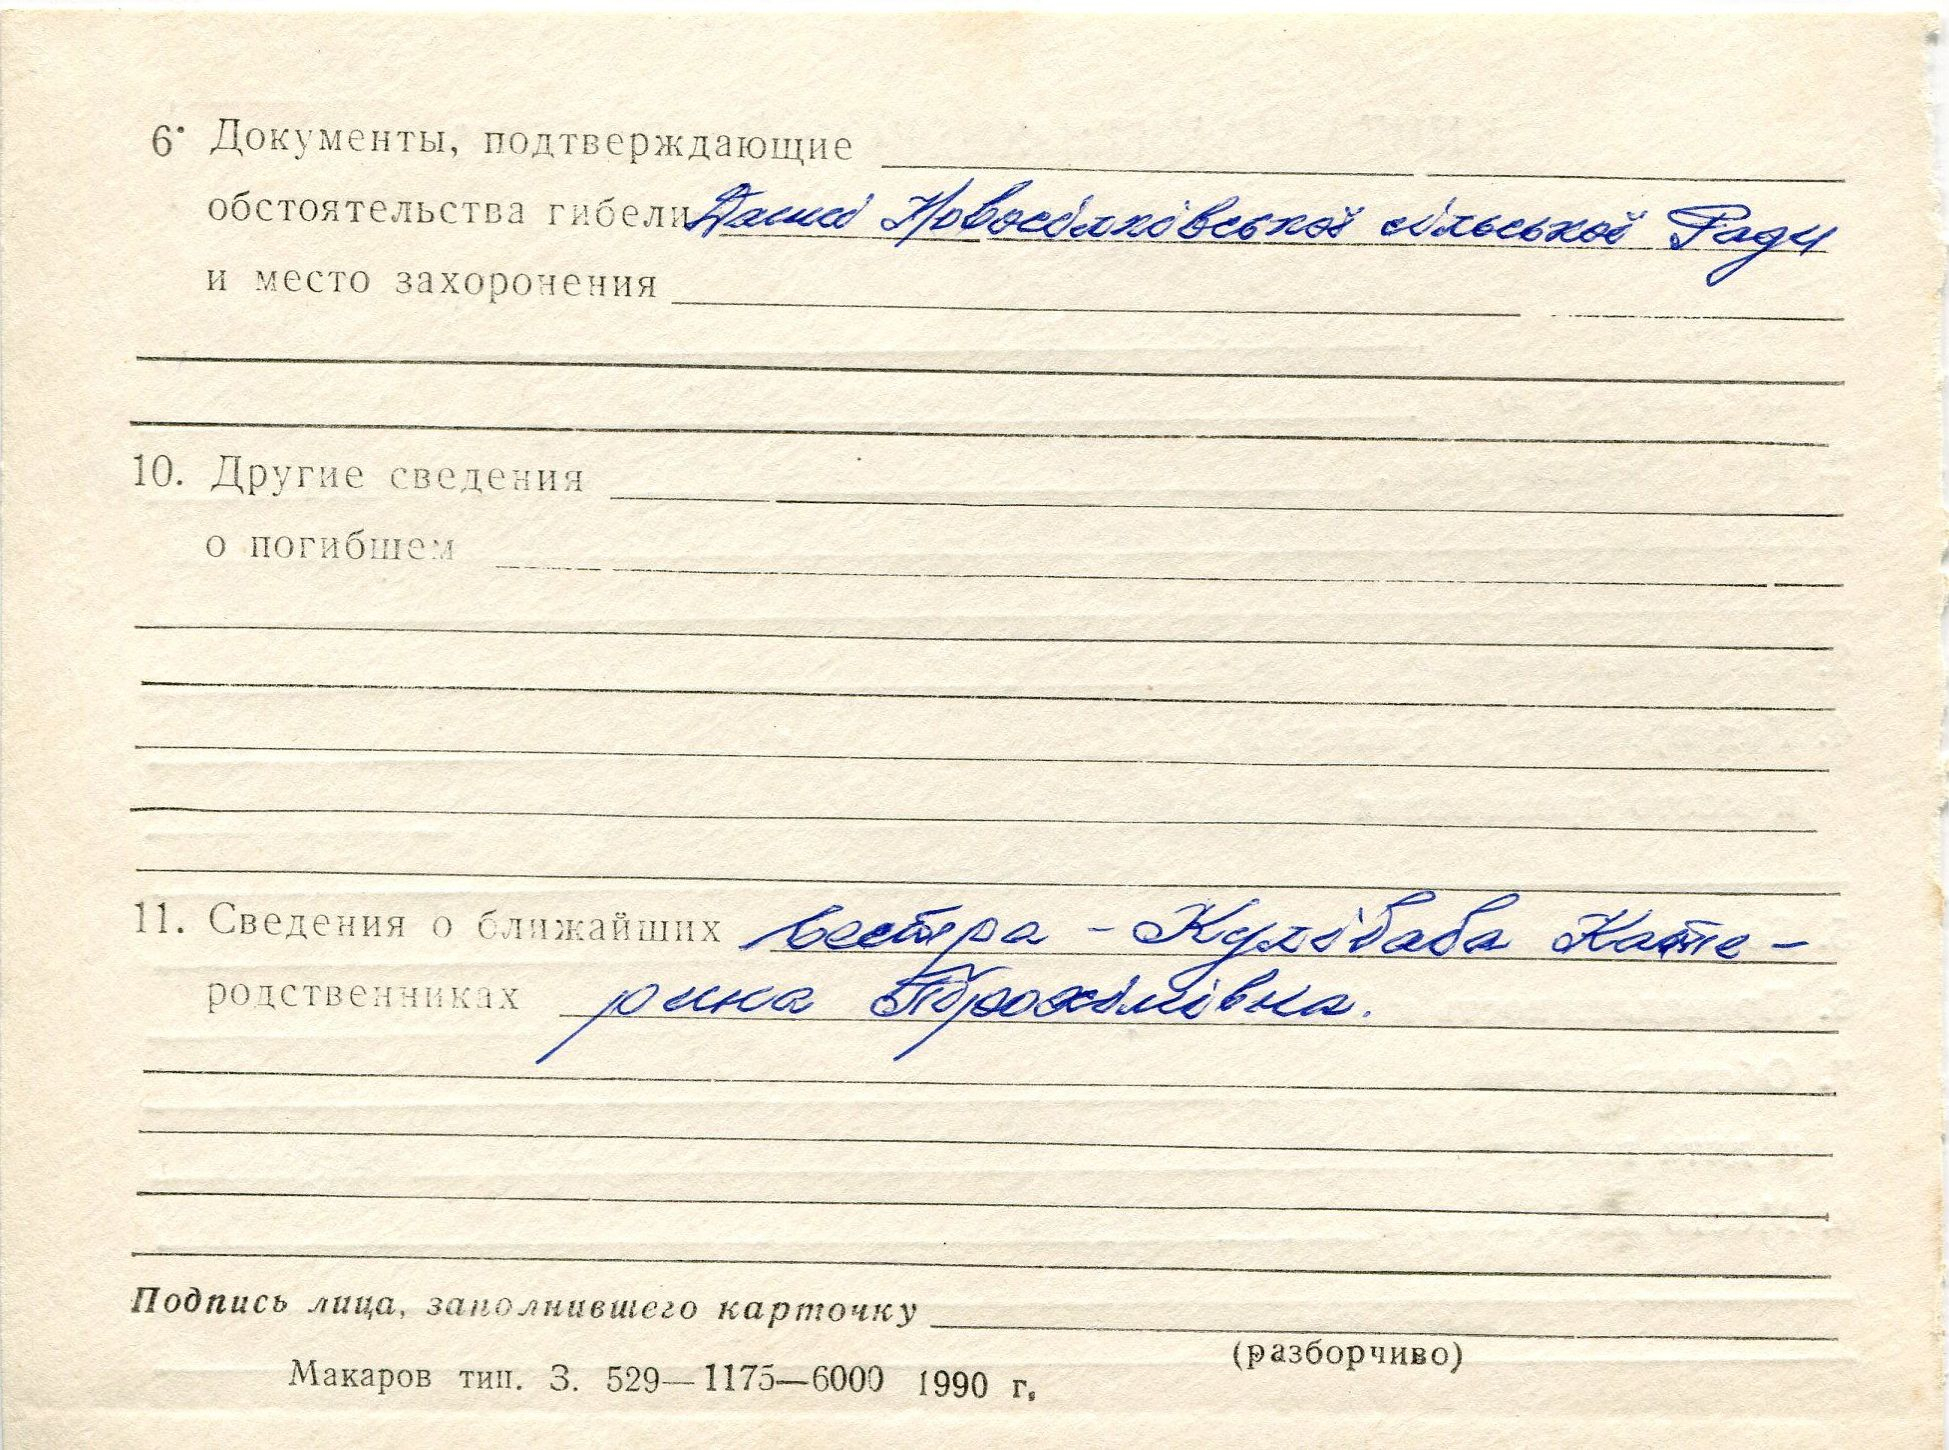 6. Документы, подтверждающие
обстоятельства гибели Данні Новосілківської сільської Ради
и место захоронения
10. Другие сведения
о погибшем
11. Сведения о ближайших сестра - Кулібаба Кате-
родственниках рина Трохимівна.
Подпись лица, заполнившего карточку
(разборчиво)
Макаров тип. З. 529—1175—6000 1990 г.